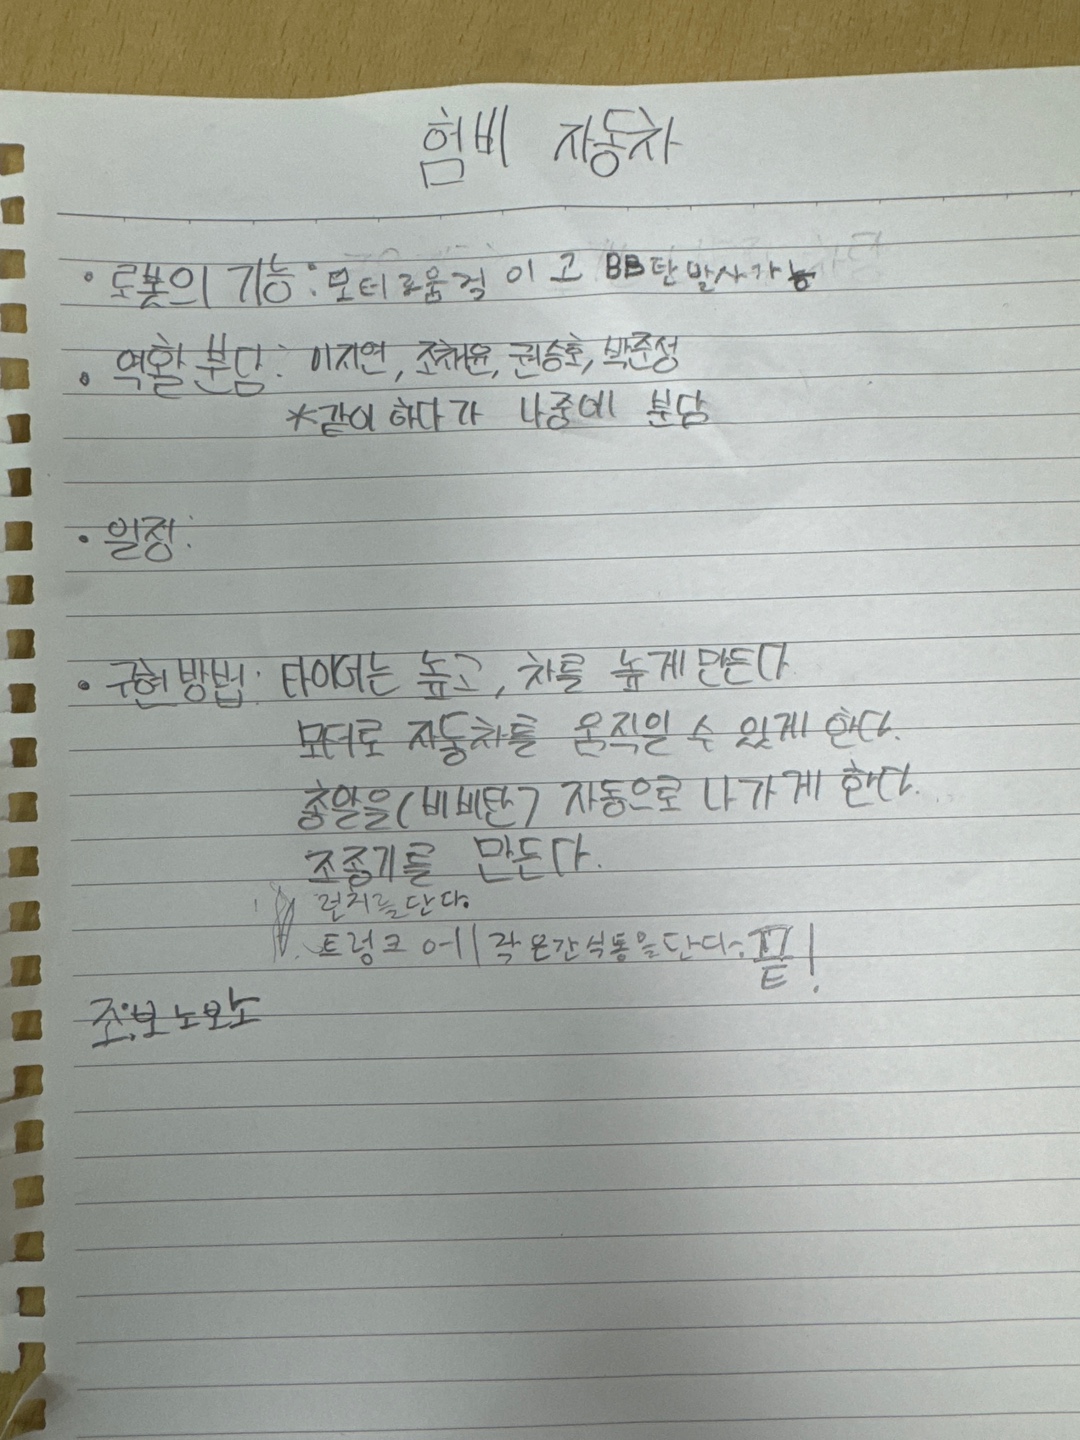 험비 자동차
• 로봇의 기능: 모터로움직이고 BB탄 발사가능
• 역할 분담: 이지연, 조채윤, 권승호, 박준정
*같이 하다가 나중에 분담
• 일정:
• 구현방법: 타이어는 높고, 차를 높게 만든다
모터로 자동차를 움직일 수 있게 한다.
총알을(비비탄) 자동으로 나가게 한다.
조종기를 만든다.
런처를단다.
트렁크에 작은간식통을단다. 끝!
조:보노보노